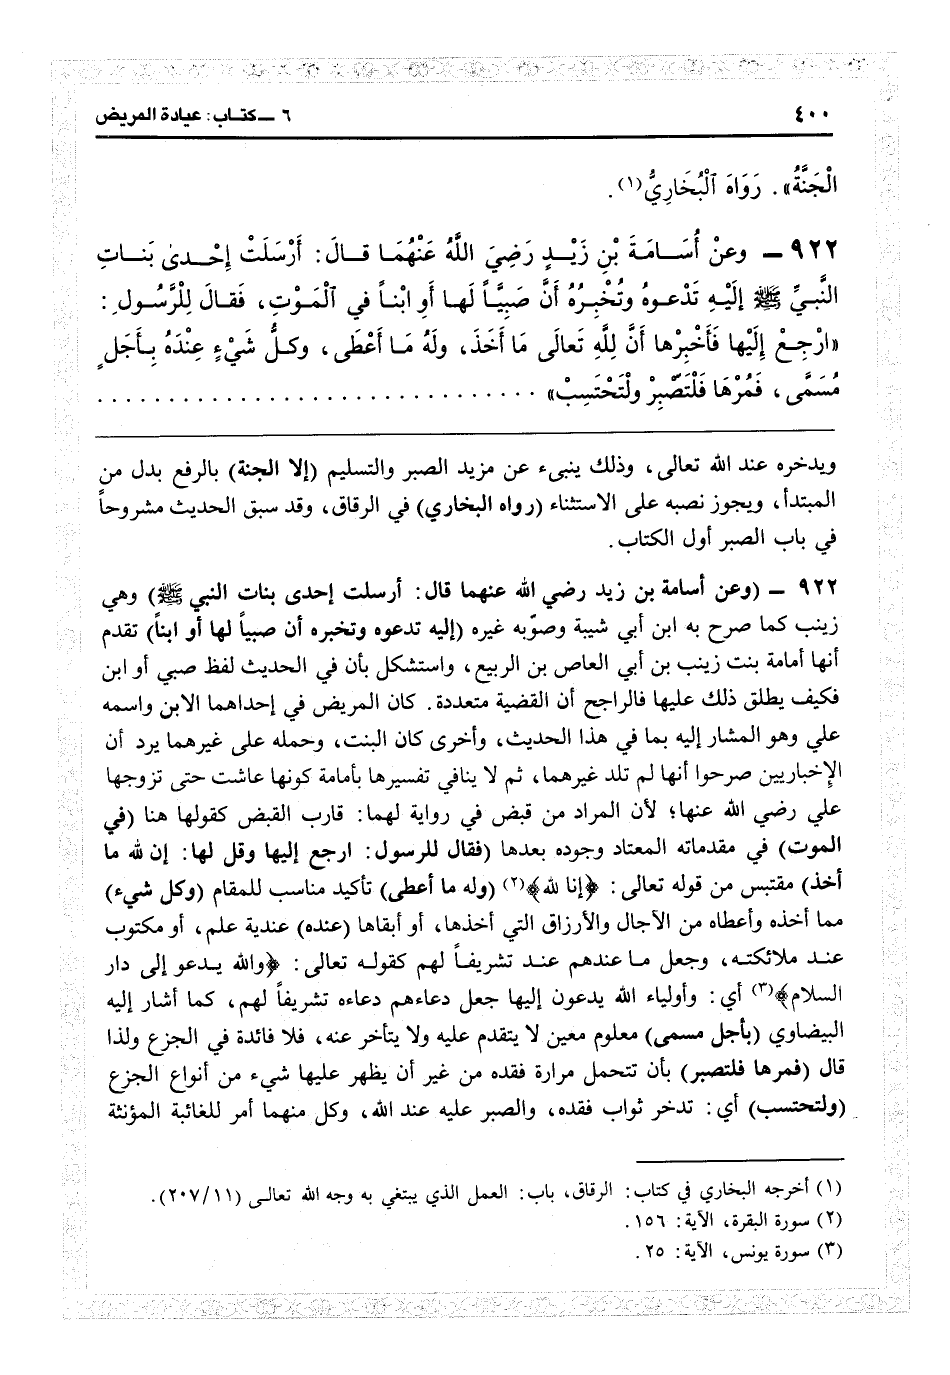 ٤٠٠
٦ ـ كتاب: عيادة المريض
الْجَنَّةُ». رَوَاهَ ٱلْبُخَارِيُّ(١).
٩٢٢ ـ وعنْ أُسَامَةَ بْنِ زَيْدٍ رَضِيَ اللَّهُ عَنْهُمَا قالَ: أَرْسَلَتْ إِحْدىٰ بَناتِ
النَّبيِّ ﷺ إلَيْهِ تَدْعوهُ وتُخْبِرُهُ أَنَّ صَبِيَّاً لَها أَوِ ابْناً في ٱلْمَوْتِ، فَقالَ لِلْرَّسُولِ:
«ارْجِعْ إِلَيْها فَأَخْبِرْها أَنَّ لِلَّهِ تَعالَى مَا أَخَذَ، ولَهُ مَا أَعْطَى، وكلُّ شَيْءٍ عِنْدَهُ بِأَجَلٍ
مُسَمَّى، فَمُرْهَا فَلْتَصْبِرْ ولْتَحْتَسِبْ» . . . . . . . . . . . . . . . . . . . . . . . . . . . . . . .
ويدخره عند الله تعالى، وذلك ينبىء عن مزيد الصبر والتسليم (إلا الجنة) بالرفع بدل من
المبتدأ، ويجوز نصبه على الاستثناء (رواه البخاري) في الرقاق، وقد سبق الحديث مشروحاً
في باب الصبر أول الكتاب.
٩٢٢ ـ (وعن أسامة بن زيد رضي الله عنهما قال: أرسلت إحدى بنات النبي ﷺ) وهي
زينب كما صرح به ابن أبي شيبة وصوّبه غيره (إليه تدعوه وتخبره أن صبياً لها أو ابناً) تقدم
أنها أمامة بنت زينب بن أبي العاص بن الربيع، واستشكل بأن في الحديث لفظ صبي أو ابن
فكيف يطلق ذلك عليها فالراجح أن القضية متعددة. كان المريض في إحداهما الابن واسمه
علي وهو المشار إليه بما في هذا الحديث، وأخرى كان البنت، وحمله على غيرهما يرد أن
الإخباريين صرحوا أنها لم تلد غيرهما، ثم لا ينافي تفسيرها بأمامة كونها عاشت حتى تزوجها
علي رضي الله عنها؛ لأن المراد من قبض في رواية لهما: قارب القبض كقولها هنا (في
الموت) في مقدماته المعتاد وجوده بعدها (فقال للرسول: ارجع إليها وقل لها: إن لله ما
أخذ) مقتبس من قوله تعالى: ﴿إنا لله﴾(٢) (وله ما أعطى) تأكيد مناسب للمقام (وكل شيء)
مما أخذه وأعطاه من الآجال والأرزاق التي أخذها، أو أبقاها (عنده) عندية علم، أو مكتوب
عند ملائكته، وجعل ما عندهم عند تشريفاً لهم كقوله تعالى: ﴿والله يدعو إلى دار
السلام﴾(٣) أي: وأولياء الله يدعون إليها جعل دعاءهم دعاءه تشريفاً لهم، كما أشار إليه
البيضاوي (بأجل مسمى) معلوم معين لا يتقدم عليه ولا يتأخر عنه، فلا فائدة في الجزع ولذا
قال (فمرها فلتصبر) بأن تتحمل مرارة فقده من غير أن يظهر عليها شيء من أنواع الجزع
(ولتحتسب) أي: تدخر ثواب فقده، والصبر عليه عند الله، وكل منهما أمر للغائبة المؤنثة
(١) أخرجه البخاري في كتاب: الرقاق، باب: العمل الذي يبتغي به وجه الله تعالى (٢٠٧/١١).
(٢) سورة البقرة، الآية: ١٥٦.
(٣) سورة يونس، الآية: ٢٥.